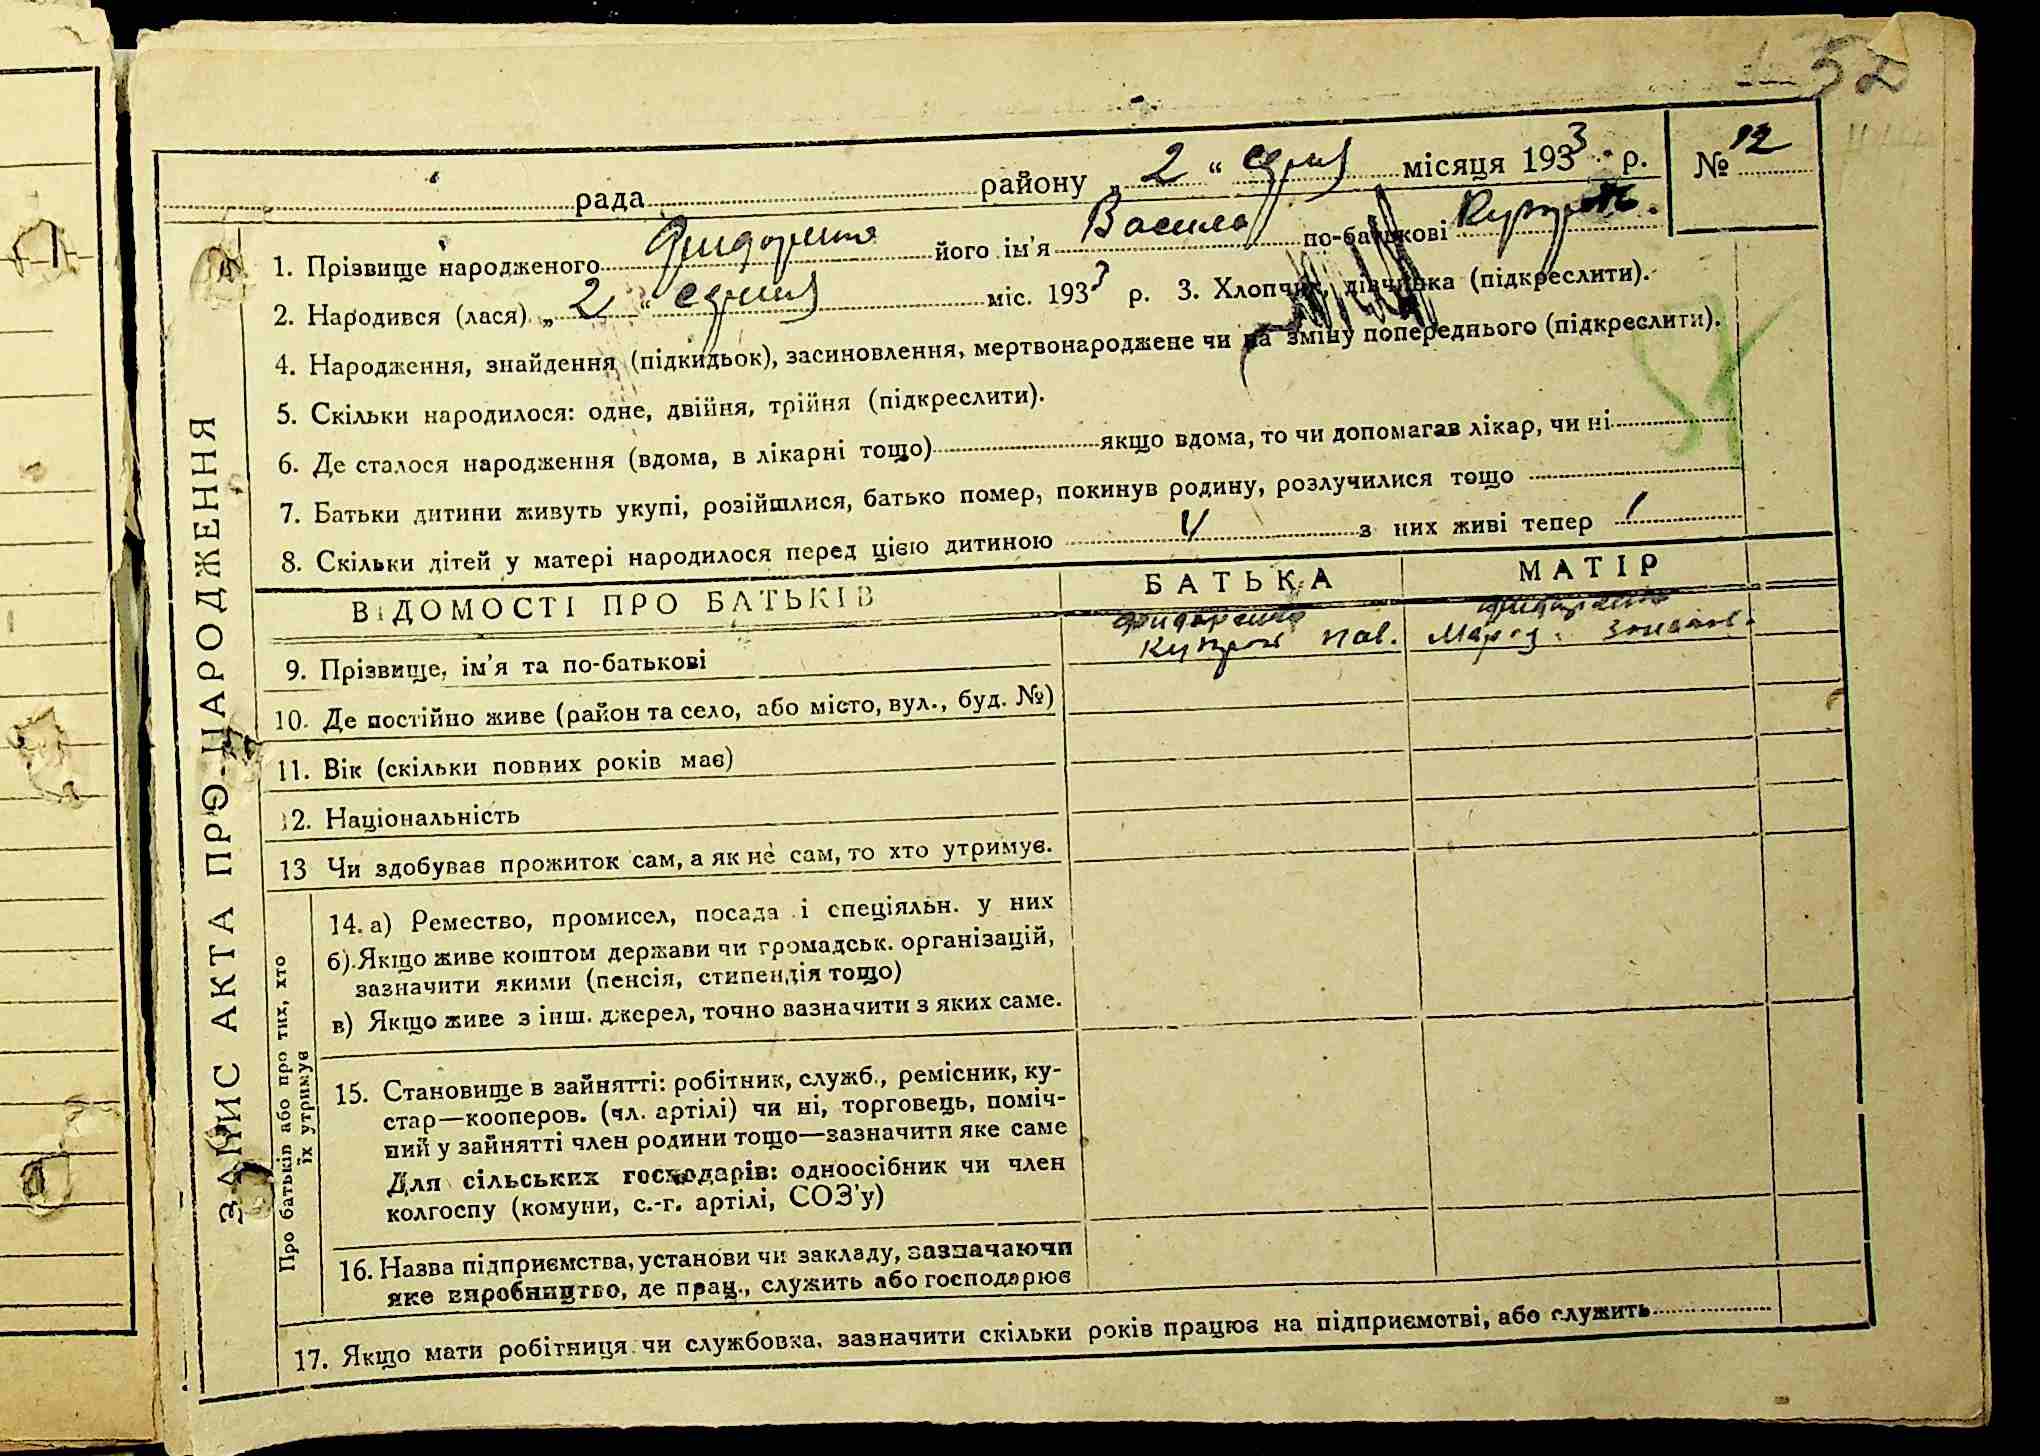 52
рада района „ 2 “ серпня місяця 1933 р. № 12
1. Прізвище народженого його ім'я Василь по-батькові
2. Народився (лася) „ 2 “ серпня міс. 1933 р. 3. Хлопчик, дівчинка (підкреслити).
4. Народження, знайдення (підкидьок), засиновлення, мертвонароджене чи на зміну попереднього (підкреслити).
5. Скільки народилося: одне, двійня, трійня (підкреслити).
6. Де сталося народження (вдома, в лікарні тощо) якщо вдома, то чи допомагав лікар, чи ні
7. Батьки дитини живуть укупі, розійшлися, батько помер, покинув родину, розлучилися тощо
8. Скільки дітей у матері народилося перед цією дитиною з них живі тепер 1
ВІДОМОСТІ ПРО БАТЬКІВ БАТЬКА МАТІР
9. Прізвище, ім'я та по-батькові
10. Де постійно живе (район та село, або місто, вул., буд. №)
11. Вік (скільки повних років має)
12. Національність
13 Чи здобував прожиток сам, а як не сам, то хто утримує.
Про батьків або про тих, хто
їх утримує
14. а) Ремество, промисел, посада і спеціяльн. у них
б) Якщо живе коштом держави чи громадськ. організацій,
зазначити якими (пенсія, стипендія тощо)
в) Якщо живе з інш. джерел, точно зазначити з яких саме.
15. Становище в зайнятті: робітник, служб., ремісник, ку-
стар—кооперов. (чл. артілі) чи ні, торговець, поміч-
ний у зайнятті член родини тощо—зазначити яке саме
Для сільських господарів: одноосібник чи член
колгоспу (комуни, с.-г. артілі, СОЗ'у)
16. Назва підприємства, установи чи закладу, зазначаючи
яке виробництво, де прац., служить або господарює
17. Якщо мати робітниця чи службовка, зазначити скільки років працює на підприємстві, або служить
ЗАПИС АКТА ПРО НАРОДЖЕННЯ